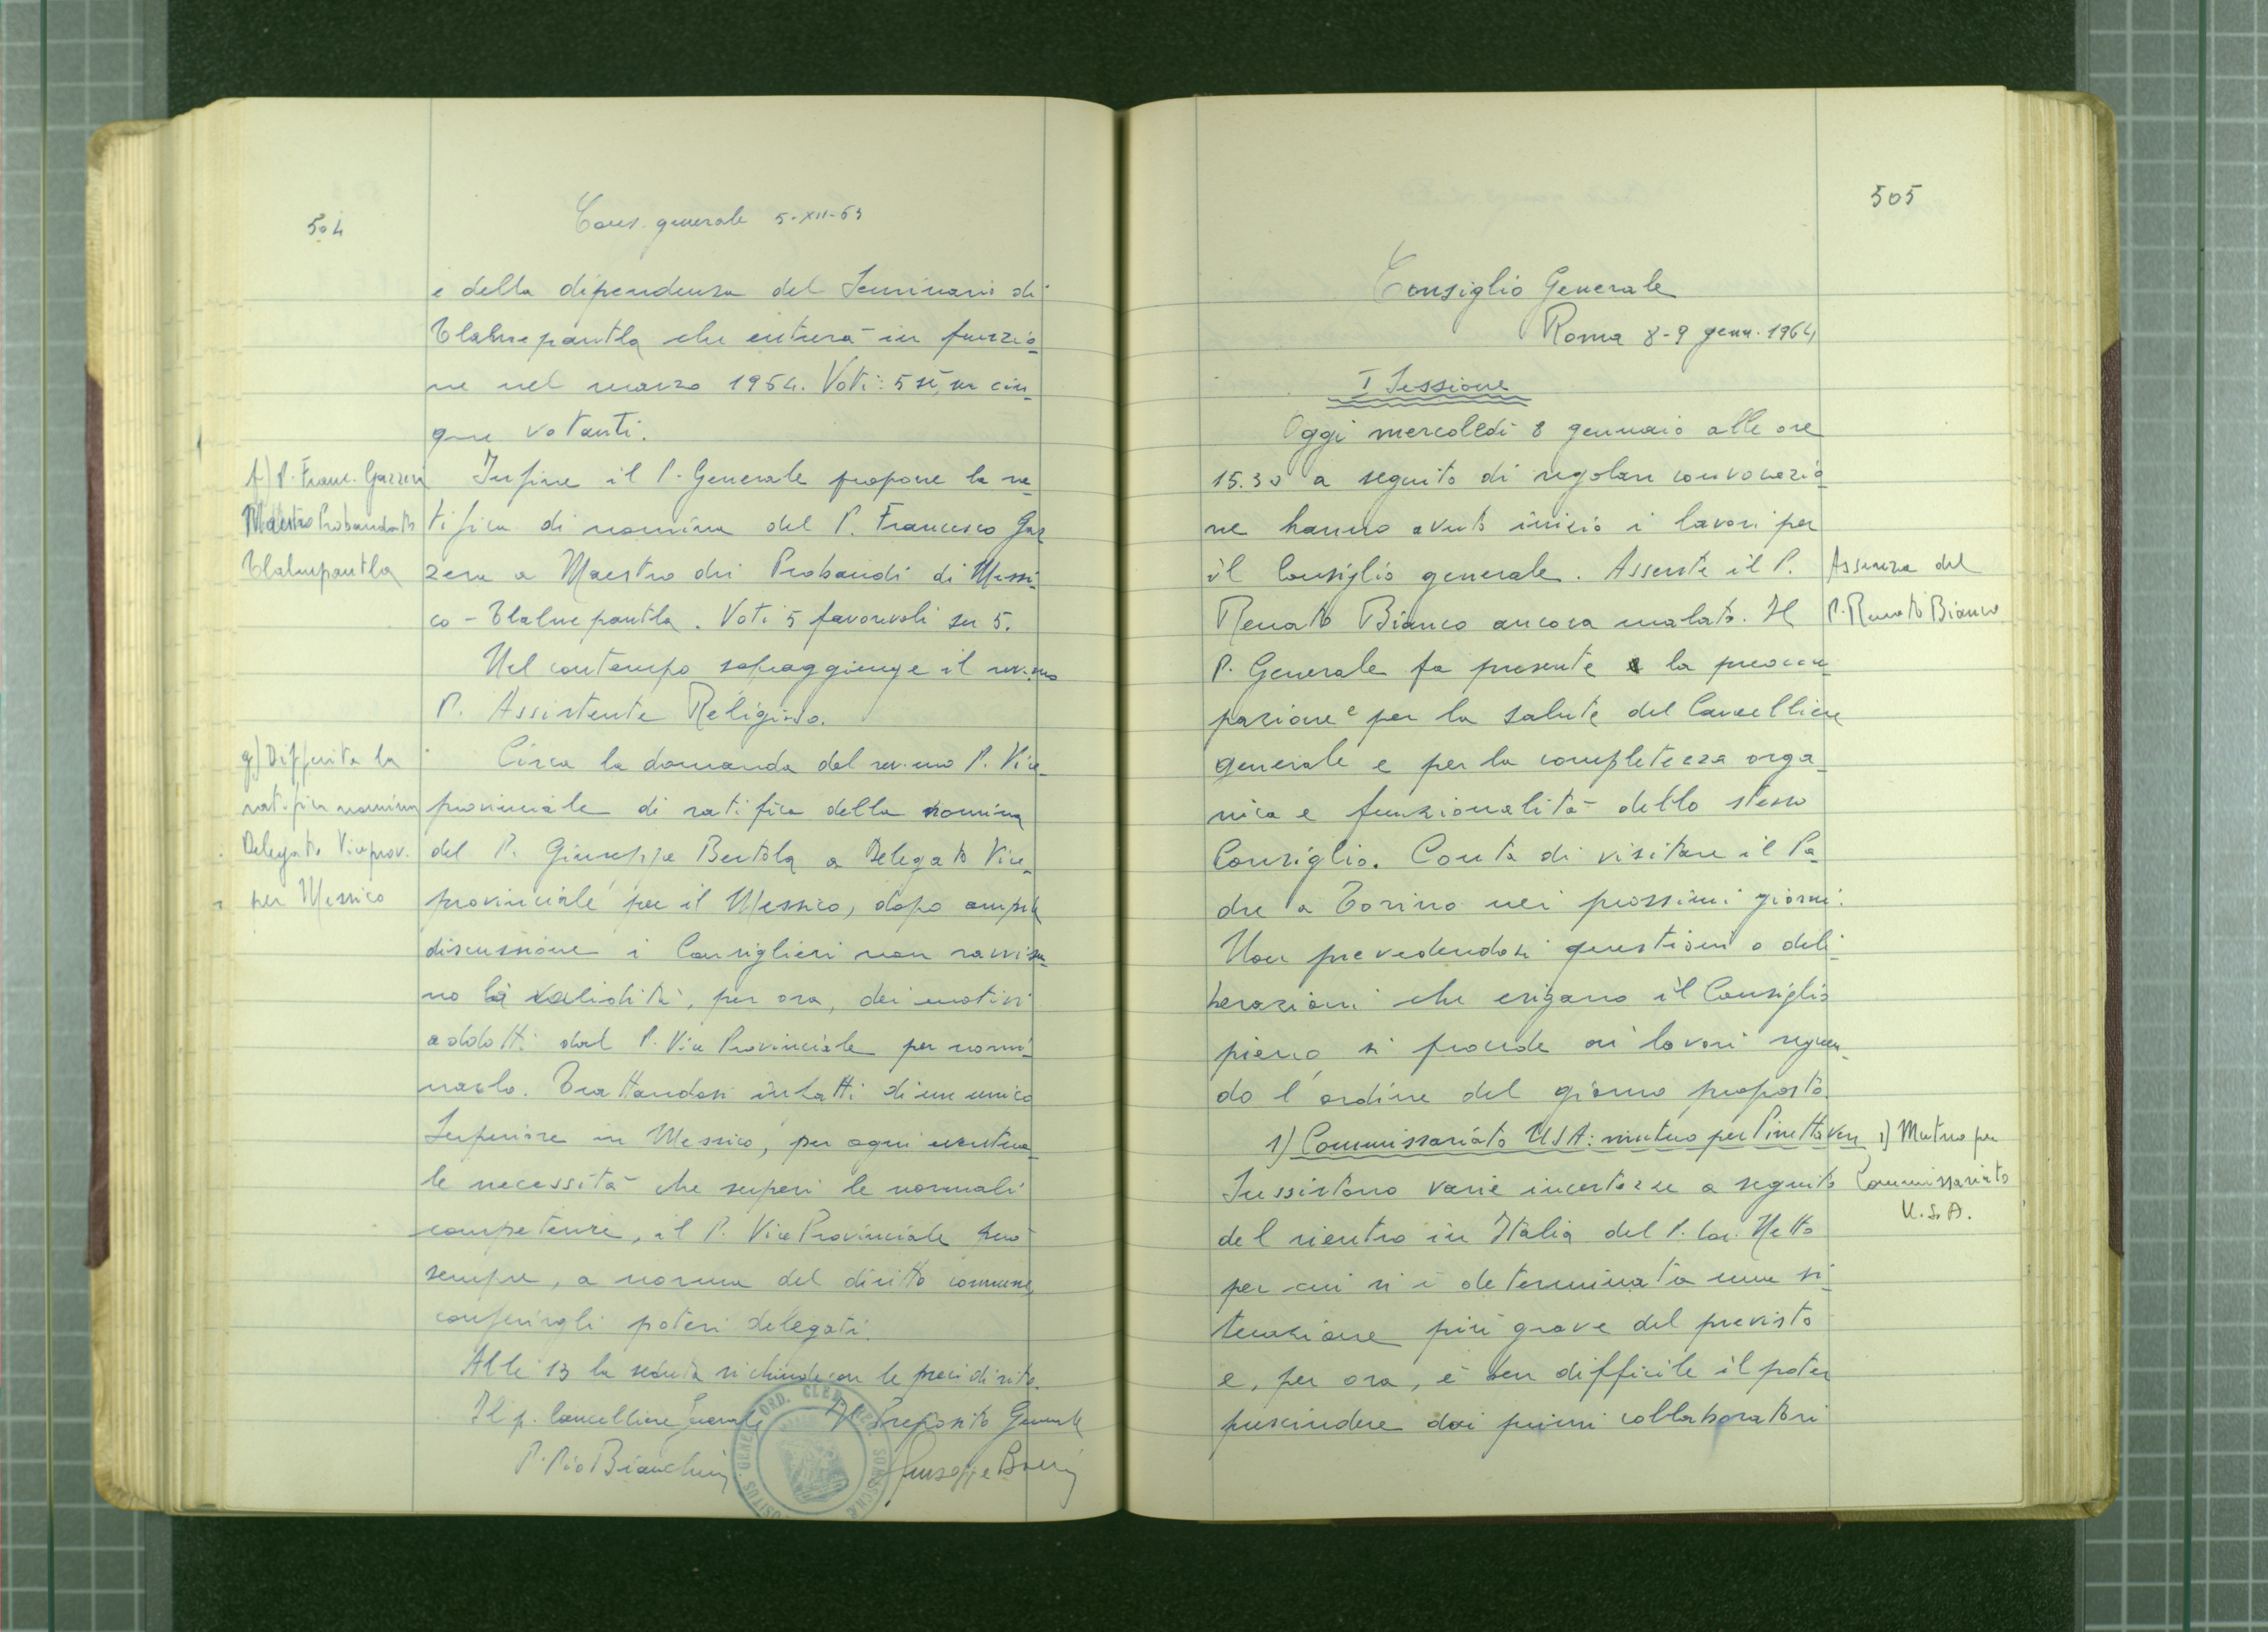 504
Cons. generale 5-XII-63
e della dipendenza del Seminario di
Tlalnepantla che entrerà in funzio-
ne nel marzo 1964. Voti: 5 sì, su cin-
que votanti.
f) P. Franc. Gazzera
Maestro Probandato
Tlalnepantla
Infine il P. Generale propone la ra-
tifica di nomina del P. Francesco Gaz
zera a Maestro dei Probandi di Messi-
co - Tlalnepantla. Voti 5 favorevoli su 5.
Nel contempo sopraggiunge il rev.mo
P. Assistente Religioso.
g) Differita la
ratifica nomina
Delegato Viceprov.
per Messico
Circa la domanda del rev.mo P. Vice-
provinciale di ratifica della nomina
del P. Giuseppe Bertola a Delegato Vice-
provinciale per il Messico, dopo ampia
discussione i Consiglieri non ravvisa-
no la validità, per ora, dei motivi
addotti dal P. Vice Provinciale per nomi-
narlo. Trattandosi infatti di un unico
Superiore in Messico, per ogni eventua-
le necessità che superi le normali
competenze, il P. Vice Provinciale può
sempre, a norma del diritto comune,
conferirgli poteri delegati.
Alle 13 la seduta si chiude con le preci di rito.
Il p. Cancelliere Generale Il Preposito Generale
P. Pio Bianchini Giuseppe
505
Consiglio Generale
Roma 8-9 genn. 1964
I Sessione
Oggi mercoledì 8 gennaio alle ore
15.30 a seguito di regolare convocazio-
ne hanno avuto inizio i lavori per
il Consiglio generale. Assente il P.
Renato Bianco ancora malato. Il
Assenza del
P. Renato Bianco
P. Generale fa presente la preoccu-
pazione e per la salute del Cancelliere
generale e per la completezza orga-
nica e funzionalità dello stesso
Consiglio. Conta di visitare il Pa-
dre a Torino nei prossimi giorni.
Non prevedendosi questioni o deli-
berazioni che esigano il Consiglio
pieno, si procede ai lavori seguen-
do l'ordine del giorno proposto.
1) Commissariato USA: mutuo per
1) Mutuo per
Commissariato
U.S.A.
Sussistono varie incertezze a seguito
del rientro in Italia del P. Netto
per cui si è determinata una si-
tuazione più grave del previsto
e, per ora, è ben difficile il poter
prescindere dai primi collaboratori